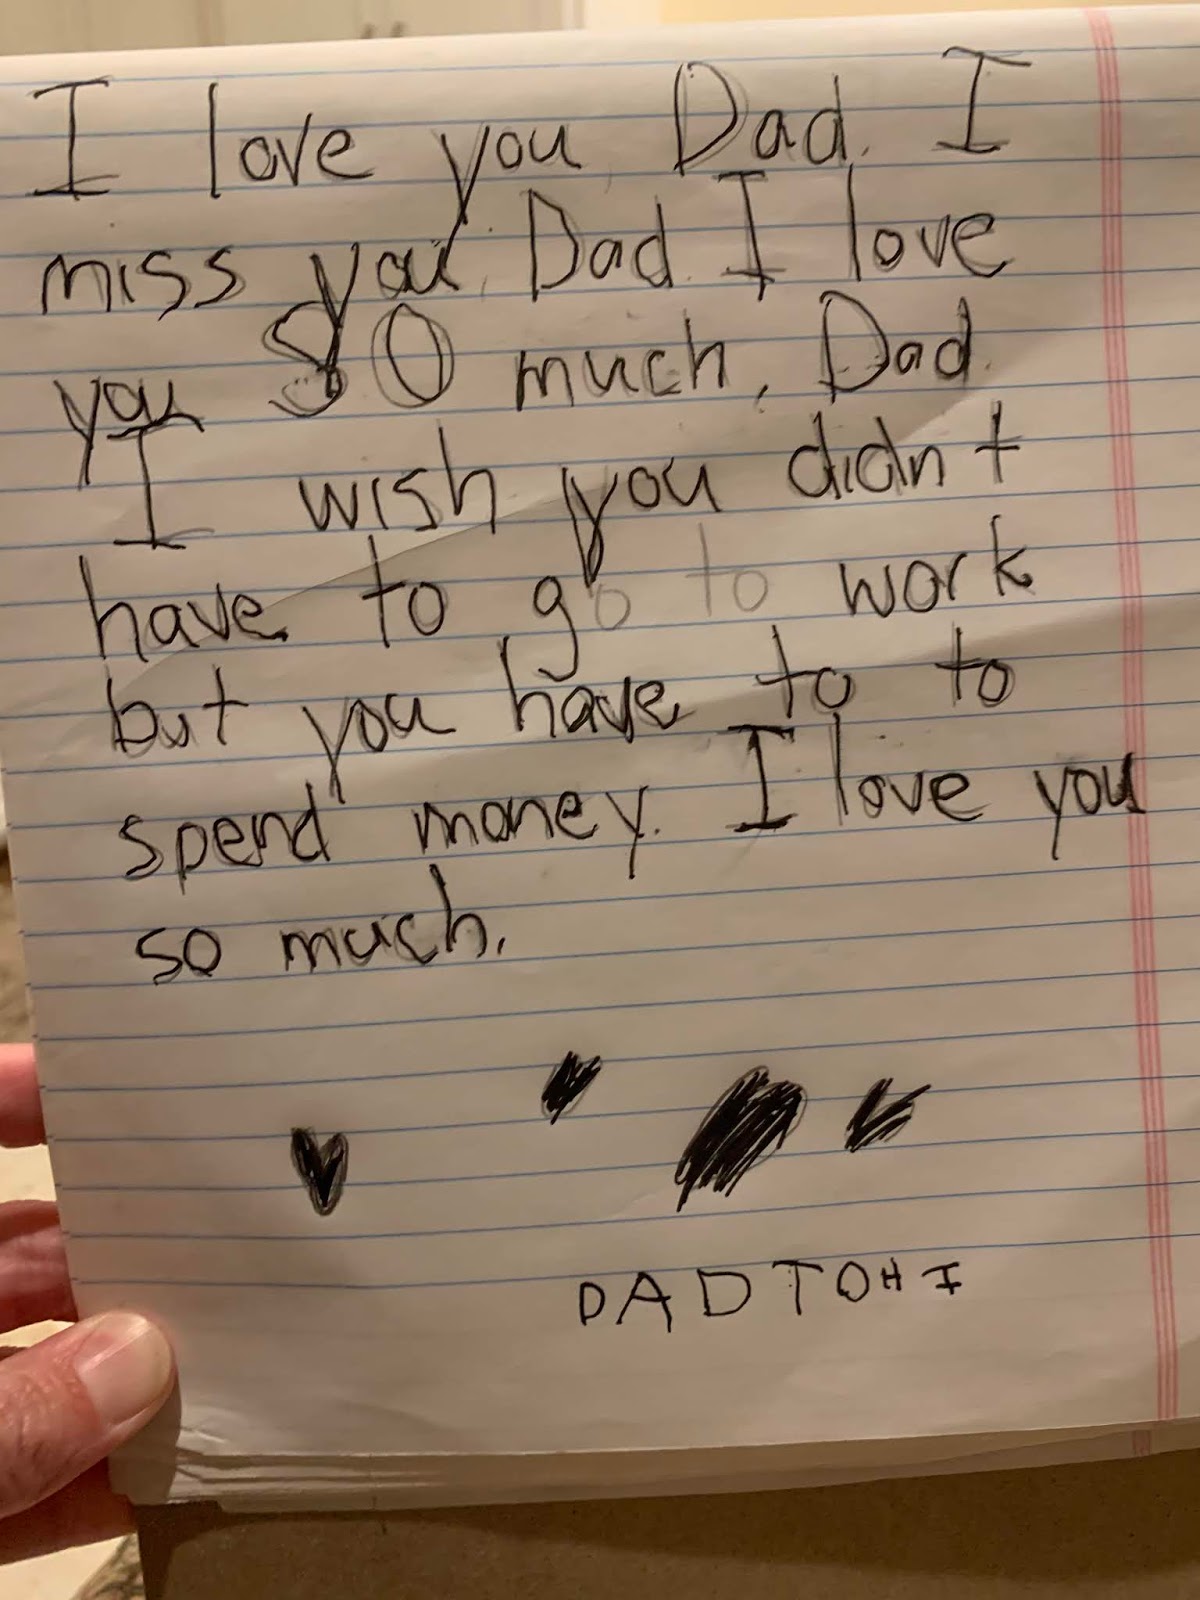 I love you Dad. I
miss you, Dad. I love
you SO much, Dad.
I wish you didnt
have to go to work
but you have to to
spend money. I love you
so much.
DADTOHI